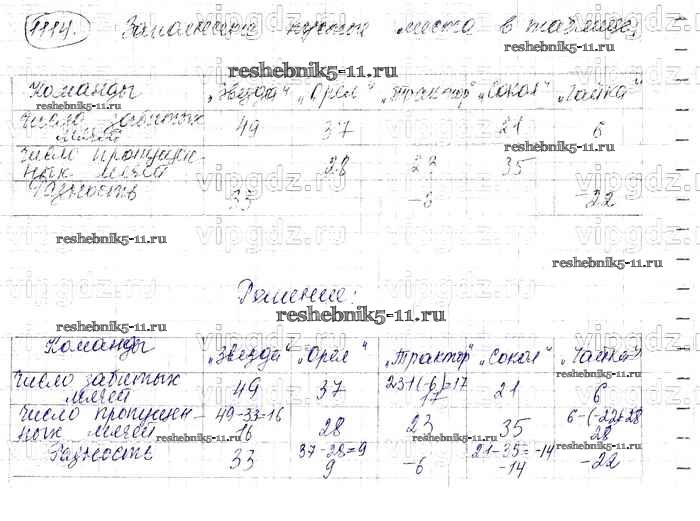 1114. Заполните пустые места в таблице,
reshebnik5-11.ru
Команды „Звезда" „Орёл" „Трактор" „Сокол" „Чайка"
reshebnik5-11.ru
Число забитых мячей 49 37 21 6
Число пропущенных мячей 28 23 35
Разность 33 -6 -22
reshebnik5-11.ru
Решение:
reshebnik5-11.ru
Команды „Звезда" „Орёл" „Трактор" „Сокол" „Чайка"
reshebnik5-11.ru
Число забитых мячей 49 37 23+(-6)=17 17 21 6
Число пропущен- 49-33=16 6-(-22)=28
ных мячей 16 28 23 35 28
reshebnik5-11.ru
Разность 33 37-28=9 9 -6 21-35=-14 -14 -22
reshebnik5-11.ru
vipgdz.ru